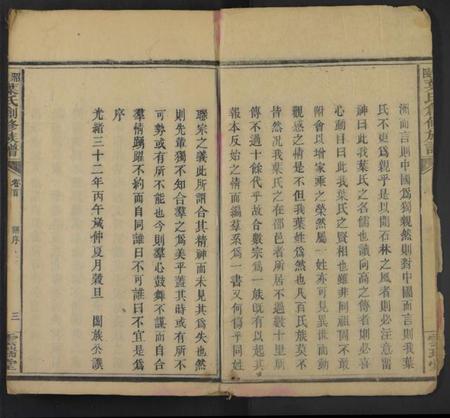 洲而言則中國爲獨親然則對中國而言則我葉
氏不更爲親乎是以聞石林之風者則必注意留
神曰此我葉氏之名儒也讀向高之傳者則必喜
心動目曰此我葉氏之賢相也雖非同祖個不敢
附會以增家乘之榮然屬一姓亦可見異世而動
觀感之情是不但我葉姓爲然也凡百氏族莫不
皆然況我葉氏之在邵邑者所居不過數十里所
傳不過十餘代乎故合數宗爲一族既有以起其
報本反始之情而編羣系爲一書又何傷乎同姓
聯宗之義此所謂合其精神而未見其爲失也然
則先輩獨不知合羣之爲美乎蓋其時或有所不
可勢或有所不能也今則羣心鼓舞不謀而自合
羣情踴躍不約而自同誰曰不可誰曰不宜是爲
序
光緒三十二年丙午歲仲夏月穀旦 闔族公撰
葉氏創修族譜
卷首
序
三
堂